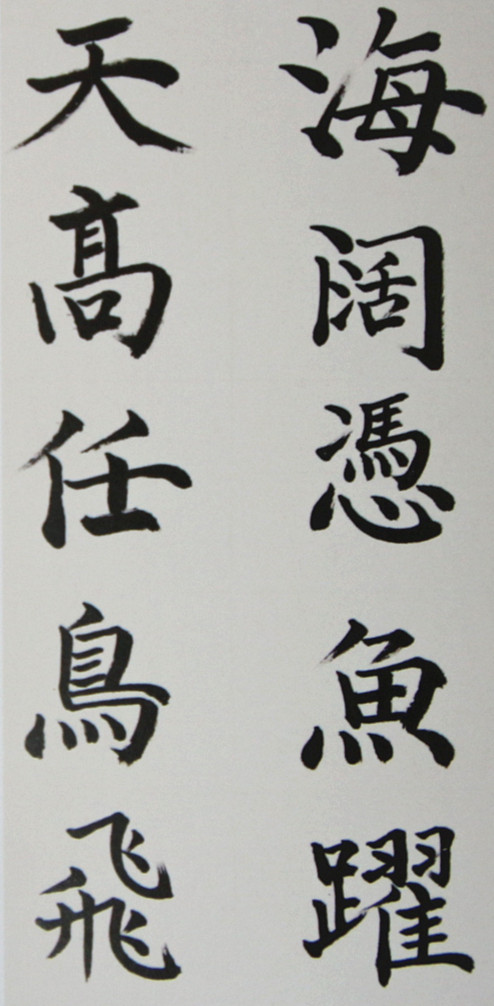 海闊憑魚躍
天髙任鳥飛